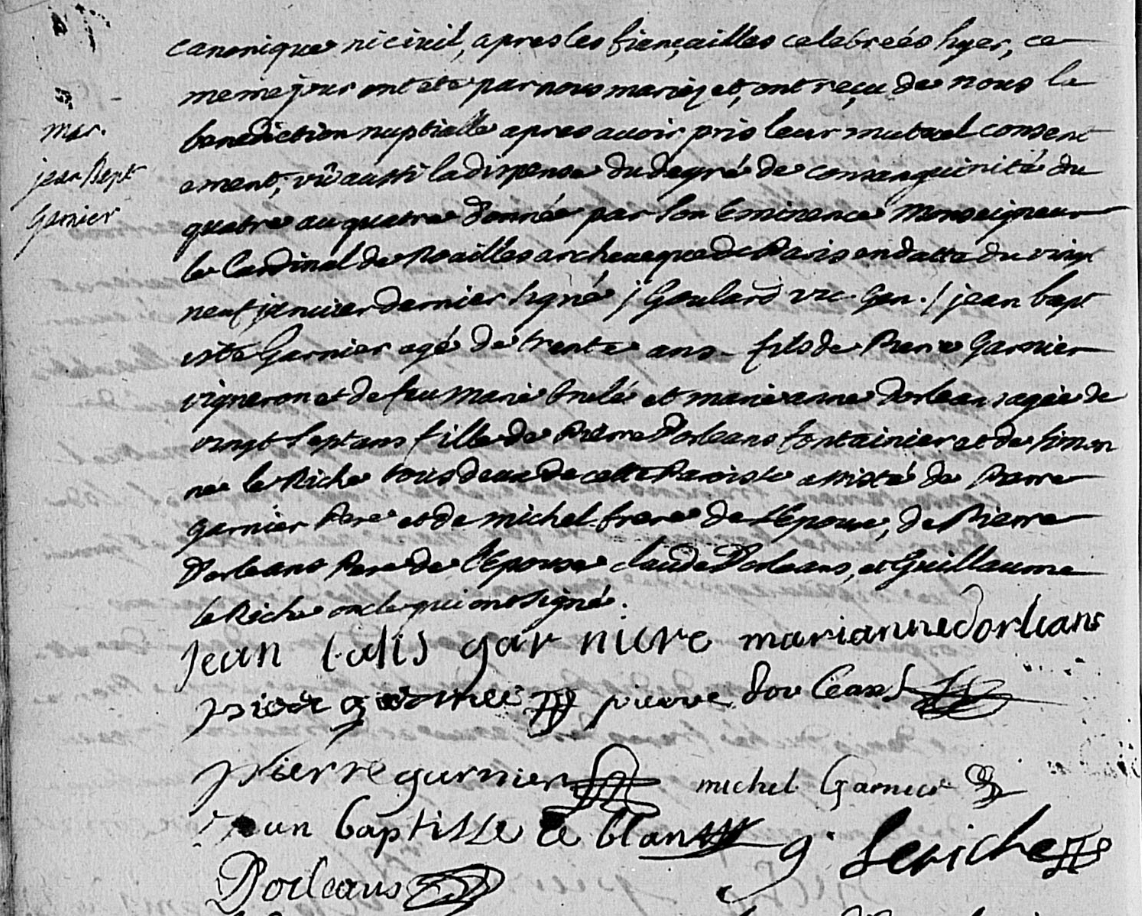 canonique ni civil, apres les fiançailles celebreés hyer, ce
meme jour ont eté par nous mariez et, ont reçu de nous la
benediction nuptialle apres avoir pris leur mutuel consent
ement, vû aussi la dispense du degré de consanguinité du
quatre au quatre donnée par son Eminence Monseigneur
le Cardinal de Noailles archeveque de Paris en datte du vingt
neuf janvier dernier signé / Goulard vic. Gen. / jean bapt
iste Garnier agé de trente ans - fils de Pierre Garnier
vigneron et de feu Marie brulé et marie anne dorleans agée de
vingt sept ans fille de Pierre Dorleans fontainier et de simon
ne le Riche tous deux de cette Paroisse assisté de Pierre
garnier Pere et de michel frere de l'Epoux, de Pierre
Dorleans Pere de l'Epouse claude Dorleans, et Guillaume
le Riche oncle qui ont signé.
mar.
jean Bapt
Garnier
jean batis gar niere marianne dorleans
pierre dorleans
pierre garnier michel Garnier
jean baptisse le blan
g. leriche
Dorleans